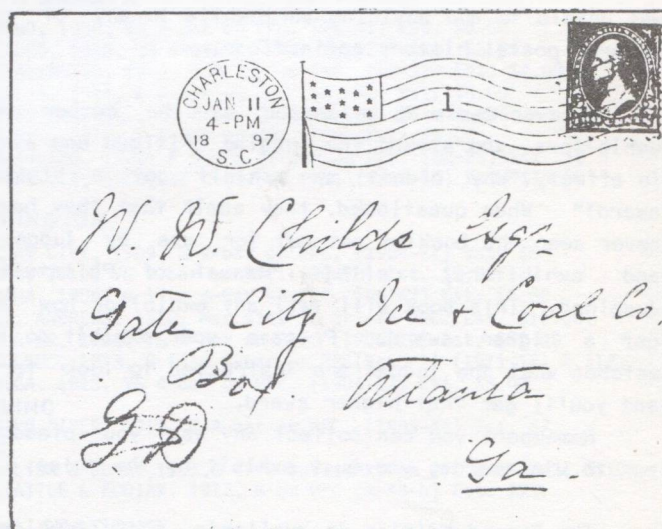 CHARLESTON
JAN 11
4-PM
18 97
S.C.
1
W W Childs Agt
Gate City Ice & Coal Co
Box Atlanta
Ga.